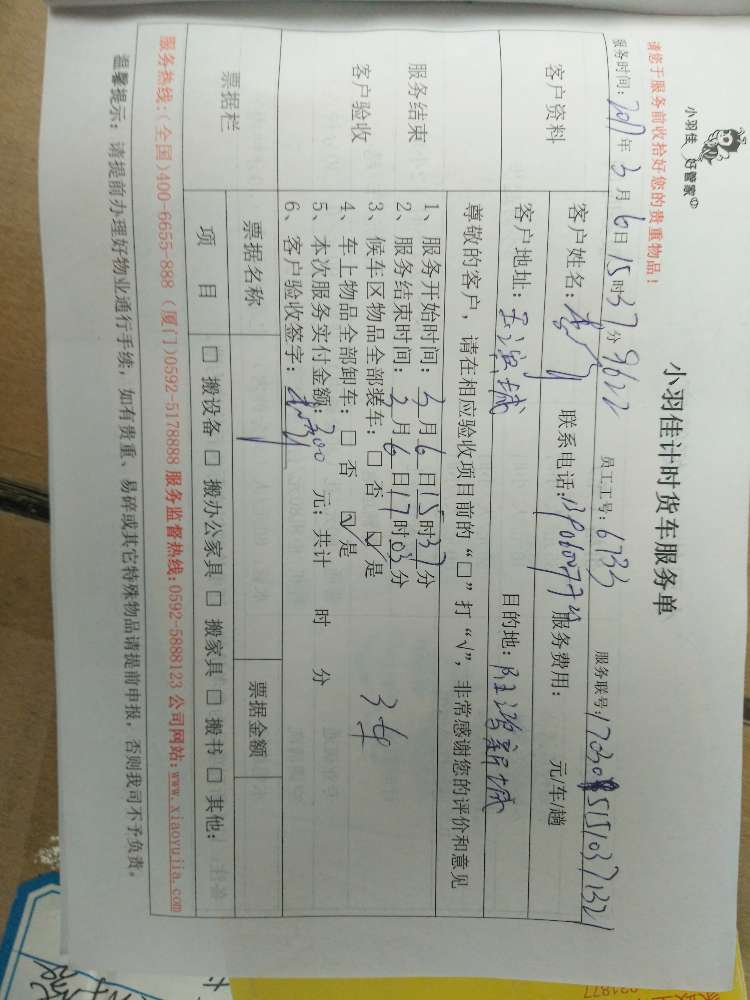 小羽佳 好管家
小羽佳计时货车服务单
请您于服务前收拾好您的贵重物品！
服务时间：2017年3月6日15时37分 员工工号：6733 服务联号：
客户资料
客户姓名： 联系电话： 服务费用： 元/车/趟
客户地址： 目的地：
服务结束
客户验收
尊敬的客户，请在相应验收项目前的“□”打“√”，非常感谢您的评价和意见
1、服务开始时间：3月6日15时37分
2、服务结束时间：3月6日17时03分
3、候车区物品全部装车：□ 否 ☑ 是
4、车上物品全部卸车：□ 否 ☑ 是
5、本次服务实付金额：300 元；共计 时 分
6、客户验收签字：
票据栏
票据名称 票据金额
项 目 □ 搬设备 □ 搬办公家具 □ 搬家具 □ 搬书 □ 其他：
服务热线：(全国)400-6655-888 (厦门)0592-5178888 服务监督热线：0592-5888123 公司网站：www.xiaoyujia.com
温馨提示：请提前办理好物业通行手续，如有贵重、易碎或其它特殊物品请提前申报，否则我司不予负责。